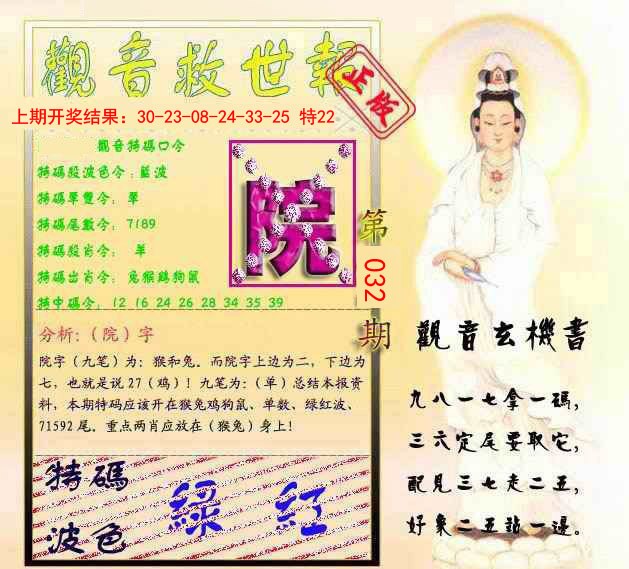 觀音救世報
正版
上期开奖结果：30-23-08-24-33-25 特22
觀音特碼口令
特碼殺波色令：藍波
特碼單雙令：單
特碼尾數令：7189
特碼殺肖令：單
特碼出肖令：兔猴鸡狗鼠
特中碼令：12 16 24 26 28 34 35 39
院
第032期
分析:（院）字
院字（九笔）为：猴和兔。而院字上边为二，下边为
七，也就是说27（鸡）！九笔为：（单）总结本报资
料，本期特码应该开在猴兔鸡狗鼠、单数、绿红波、
71592尾。重点两肖应放在（猴兔）身上！
特碼
波色
綠紅
觀音玄機書
九八一七拿一碼，
三六定尾要取它，
配見三七走二五，
好象二五站一邊。